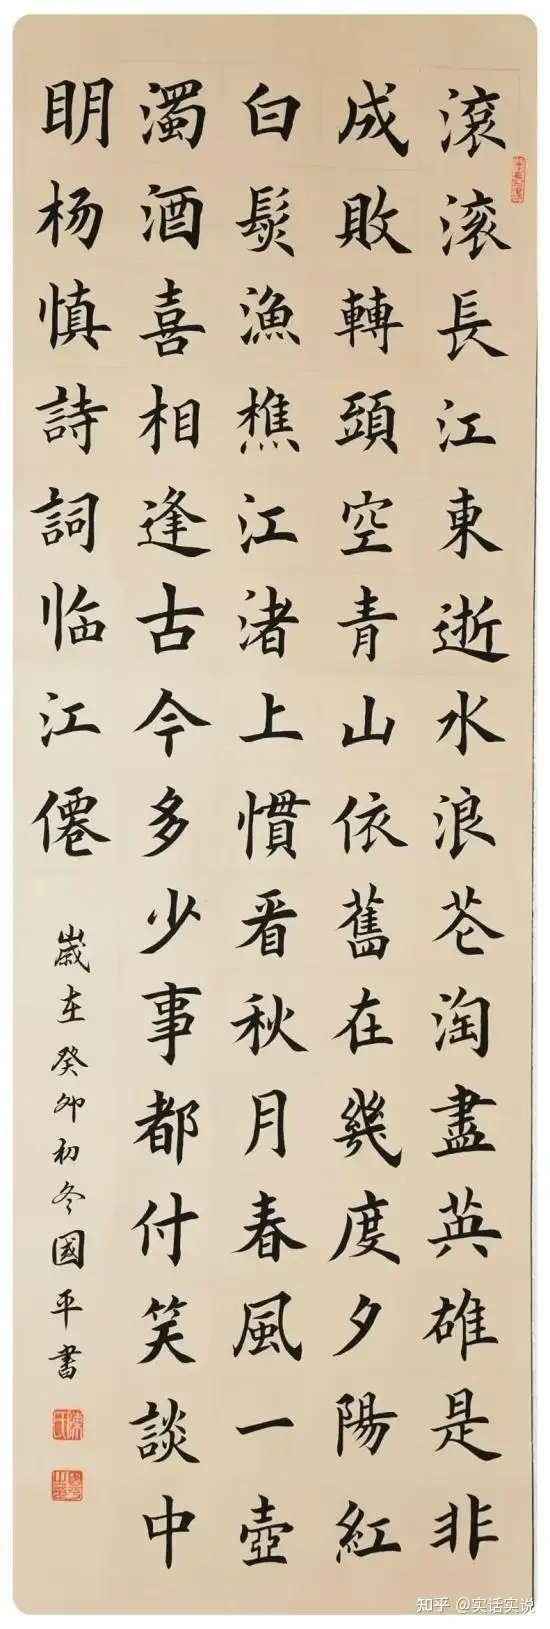 滚滚長江東逝水浪苍淘盡英雄是非
成敗轉頭空青山依舊在幾度夕陽紅
白髮漁樵江渚上慣看秋月春風一壺
濁酒喜相逢古今多少事都付笑談中
明杨慎詩詞临江僊
歲在癸卯初冬國平書
知乎 @实话实说